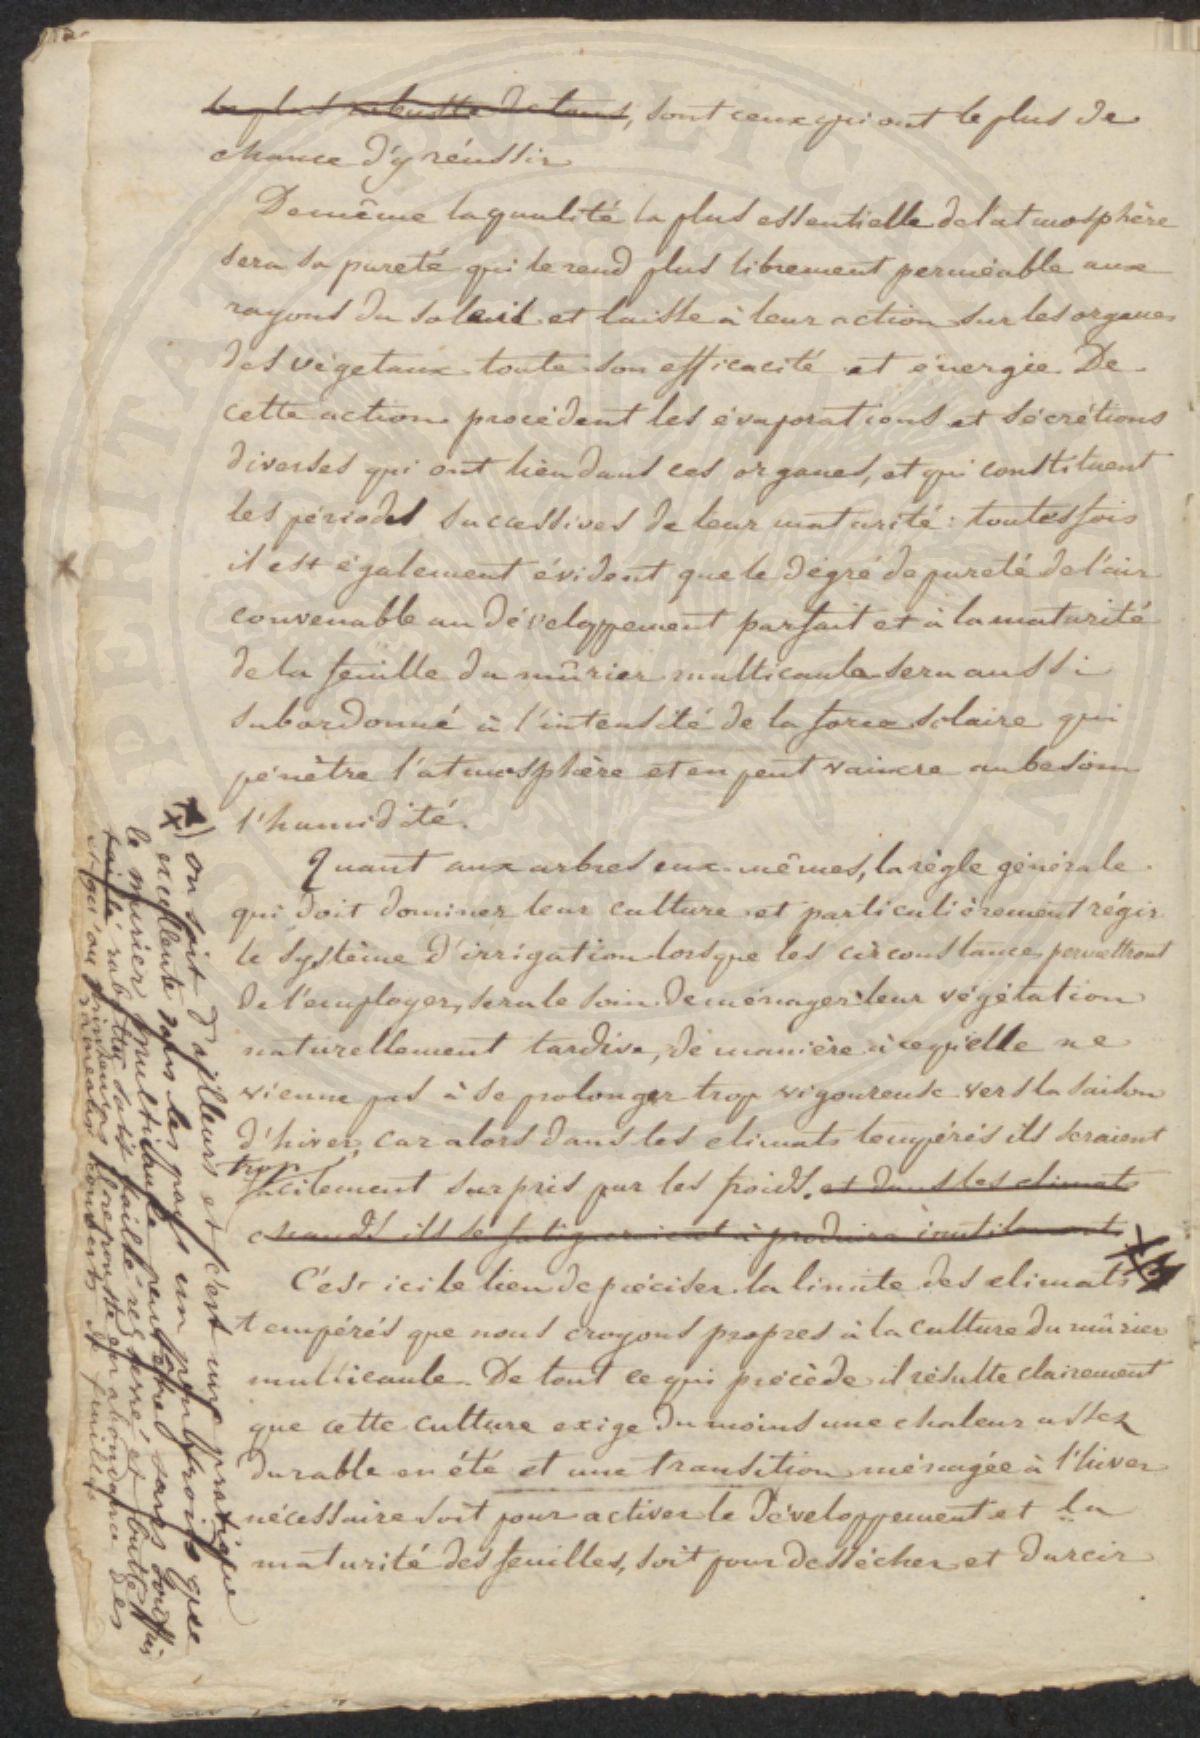 le plus robuste de tous, sont ceux qui ont le plus de
chance d'y réussir
De même la qualité la plus essentielle de l'atmosphère
sera sa pureté qui le rend plus librement perméable aux
rayons du soleil et laisse à leur action sur les organes
des végétaux toute son efficacité et énergie. De
cette action procèdent les évaporations et sécrétions
diverses qui ont lieu dans ces organes, et qui constituent
les périodes successives de leur maturité : toutesfois
il est également évident que le dégré de pureté de l'air
convenable au développement parfait et à la maturité
de la feuille du mûrier multicaule sera aussi
subordonné à l'intensité de la force solaire qui
pénètre l'atmosphère et en peut vaincre au besoin
l'humidité.
Quant aux arbres eux-mêmes, la règle générale
qui doit dominer leur culture et particulièrement régir
le système d'irrigation lorsque les circonstances permettront
de l'employer, sera le soin de ménager leur végétation
naturellement tardive, de manière à ce qu'elle ne
vienne pas à se prolonger trop vigoureuse vers la saison
d'hiver, car alors dans les climats tempérés ils seraient
trop
facilement surpris par les froids. et dans les climats
chauds ils se fatigueraient à produire inutilement
C'est ici le lieu de préciser la limite des climats
tempérés que nous croyons propres à la culture du mûrier
multicaule. De tout ce qui précède il résulte clairement
que cette culture exige du moins une chaleur assez
durable en été et une transition ménagée à l'hiver
nécessaire soit pour activer le développement et la
maturité des feuilles, soit pour dessécher et durcir
x) on sait d'ailleurs et c'est une pratique
excellente dans les pays un peu froids que
le mûrier multicaule peut être sans souffrir
taillé, rabattu
et qu'au printems il repousse en abondance des
rameaux couverts de feuilles